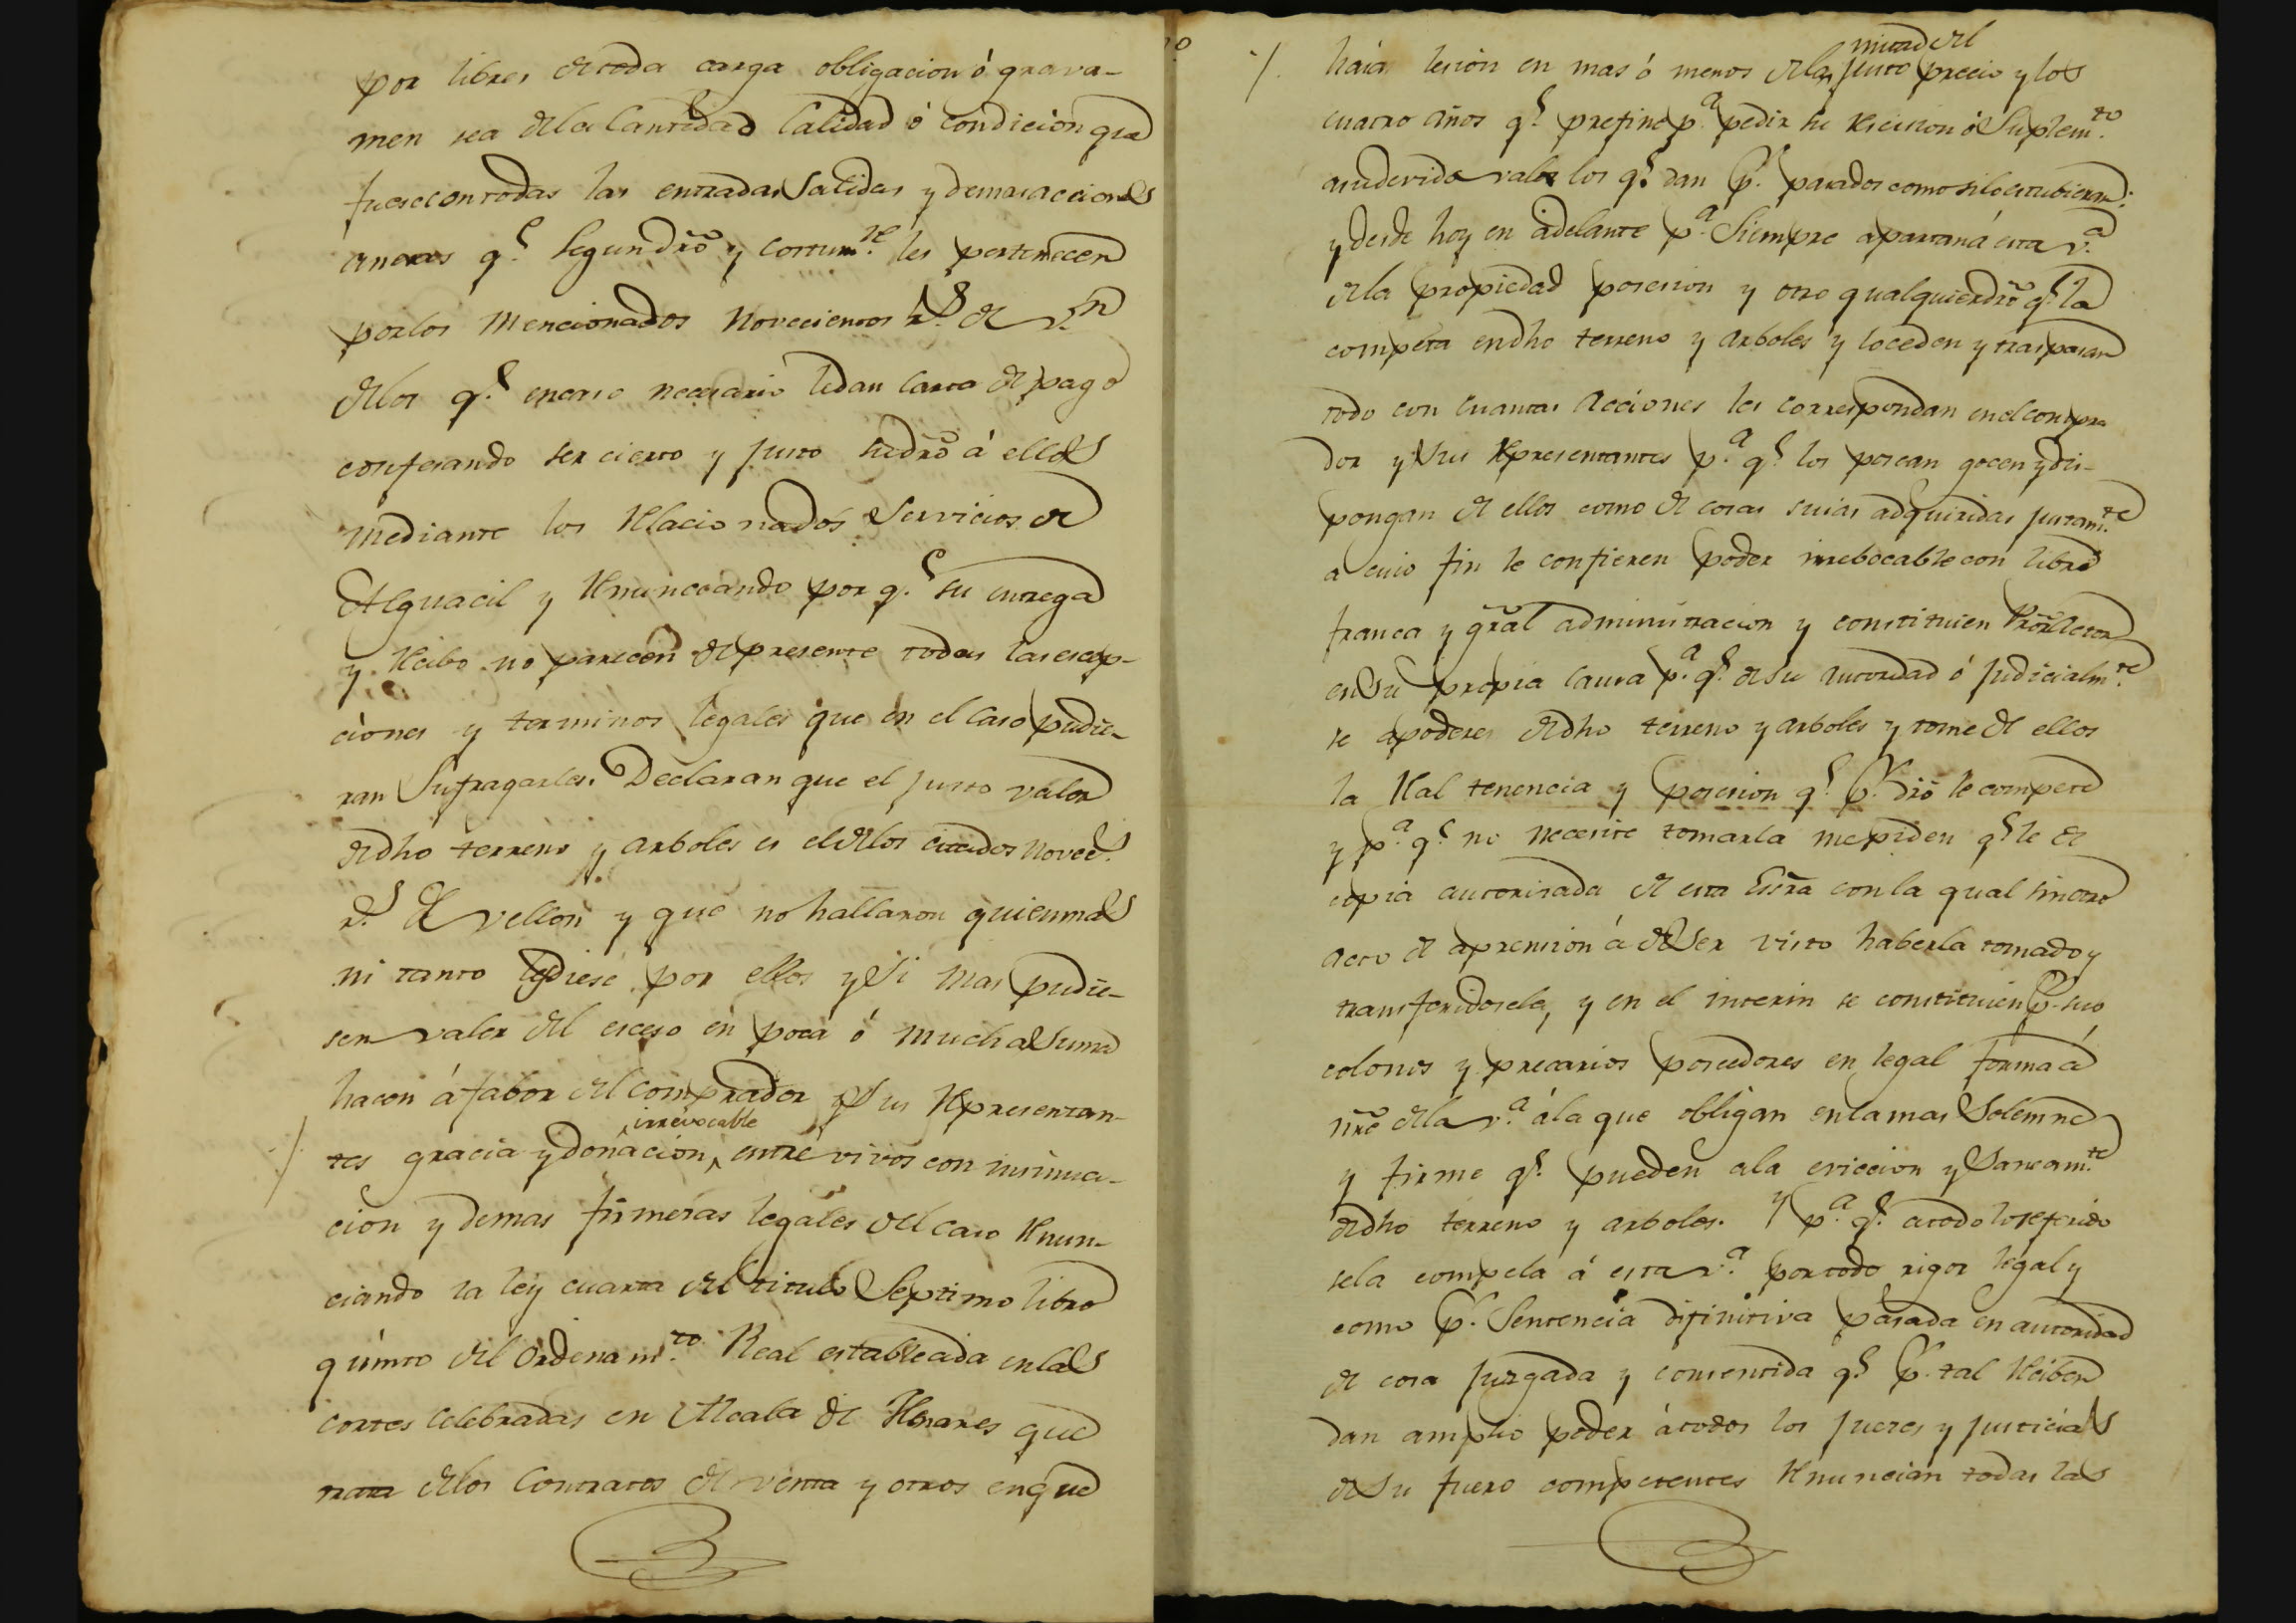 por libres de toda carga obligacion ó grava-
men sea de la Cantidad Calidad ó condicion qᵉ
fuese con todas las entradas Salidas y demas acciones
anexas qᵉ Segun dro y Costumᵉ les pertenecen
por los Mencionados Novecientos rˢ de vⁿ
de los qᵉ en caso necesario le dan Carta de pago
confesando ser cierto y justo su dro á ellos
Mediante los Relacionados Servicios de
Alguacil y Renunciando por qᵉ su entrega
y Recibo no parecen de presente todas las escep-
ciones y terminos legales que en el Caso pudie-
ran Sufragarles. Declaran que el justo valor
de dho terreno y arboles es el de los citados Novecˢ
rˢ de vellon y que no hallaron quien mas
ni tanto les diese por ellos y Si mas pudie-
sen valer del exceso en poca ó mucha Suma
hacen á fabor del comprador y Sus Representan-
irrevocable
tes gracia y donacion entre vivos con insinua-
cion y demas firmezas legales del caso Renun-
ciando la ley cuarta del titulo Septimo libro
quinto del Ordenamᵗᵒ Real establecida en las
Cortes Celebradas en Alcala de Henares que
trata de los Contratos de venta y otros en que
haia lesion en mas ó menos de la mitad del justo precio y los
cuatro años qᵉ prefine pᵃ pedir su Rescision ó Suplemᵗᵒ
a su devido valor los qᵉ dan pʳ pasados como si lo estubieran:
y desde hoy en adelante pᵃ Siempre apartan á esta vᵃ
de la propiedad posesion y otro qualquier dro qᵉ la
competa en dho terreno y arboles y lo ceden y traspasan
todo con cuantas Acciones les correspondan en el compra
dor y Sus Representantes pᵃ qᵉ los posean gocen y dis-
pongan de ellos como de cosas suias adquiridas justamᵗᵉ
a cuio fin le confieren poder irrebocable con libre
franca y gral administracion y constituien Pror Actor
en Su propia Causa pᵃ qᵉ de su autoridad ó judicialmᵗᵉ
se apodere de dho terreno y arboles y tome de ellos
la Real tenencia y posesion qᵉ pʳ dro le compete
y pᵃ qᵉ no necesite tomarla me piden qᵉ le de
copia autorizada de esta Escra con la qual sin otro
acto de aprension á de Ser visto haberla tomado y
transferidosele, y en el interin se constituien pʳ sus
colonos y precarios poseedores en legal forma á
nre de la vᵃ á la que obligan en la mas Solemne
y firme qᵉ pueden a la eviccion y Saneamᵗᵒ
de dho terreno y arboles. Y pᵃ qᵉ a todo lo referido
se la compela á esta vᵃ por todo rigor legal y
como pʳ Sentencia difinitiva pasada en autoridad
de cosa Juzgada y consentida qᵉ pʳ tal Reciben
dan amplio poder á todos los Jueces y Justicias
de Su fuero competentes Renuncian todas las